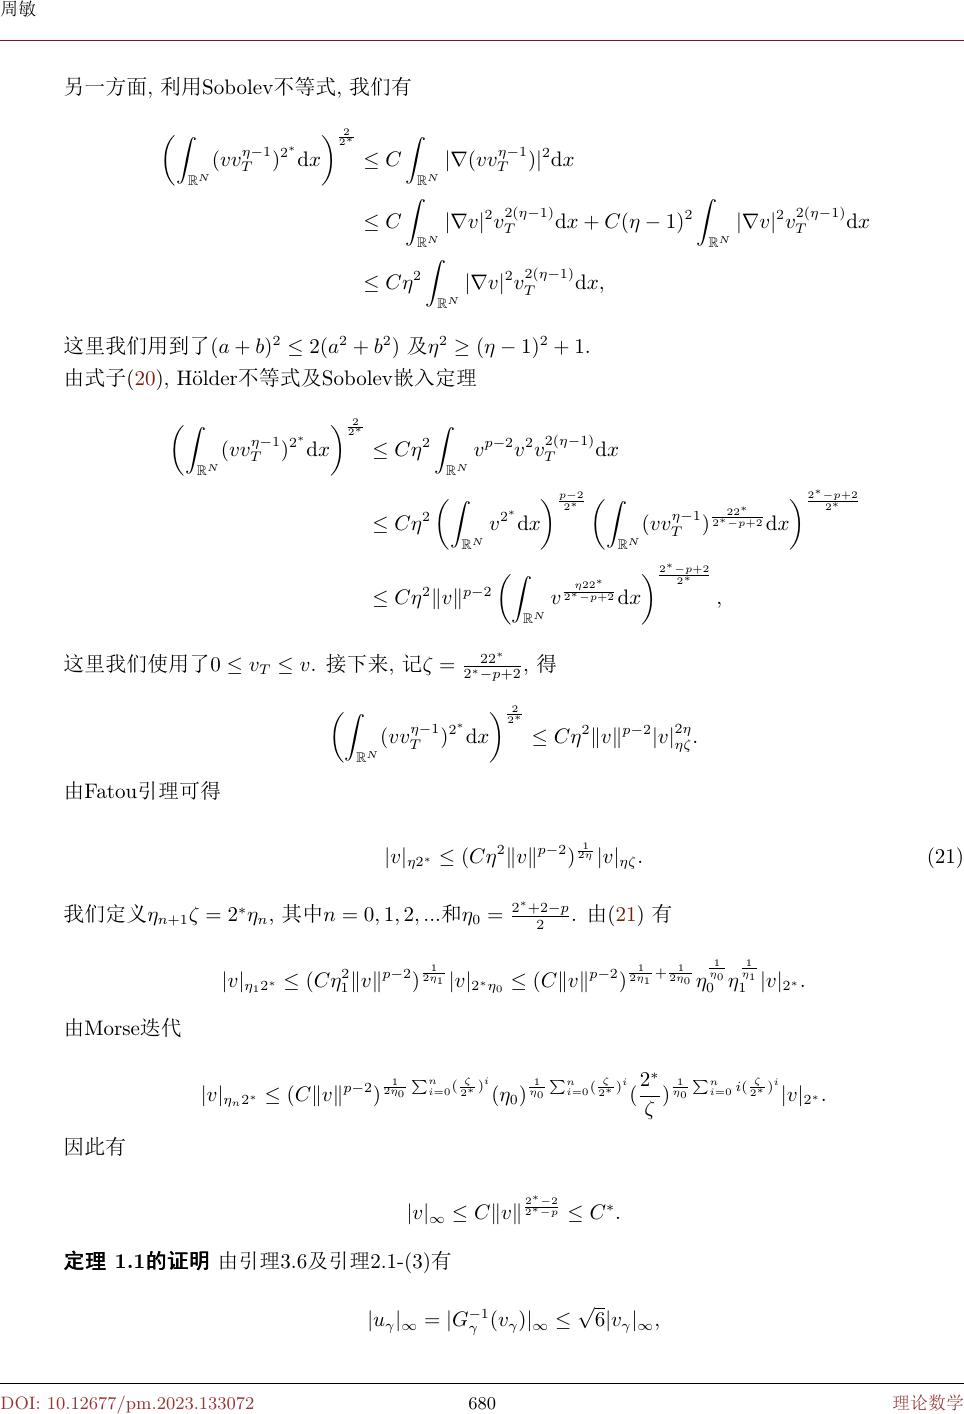 周敏
另一方面, 利用Sobolev不等式, 我们有
$\left(\int_{\mathbb{R}^N}(vv_T^{\eta-1})^{2^*}\mathrm{d}x\right)^{\frac{2}{2^*}} \leq C\int_{\mathbb{R}^N}|\nabla(vv_T^{\eta-1})|^2\mathrm{d}x$
$\leq C\int_{\mathbb{R}^N}|\nabla v|^2v_T^{2(\eta-1)}\mathrm{d}x + C(\eta-1)^2\int_{\mathbb{R}^N}|\nabla v|^2v_T^{2(\eta-1)}\mathrm{d}x$
$\leq C\eta^2\int_{\mathbb{R}^N}|\nabla v|^2v_T^{2(\eta-1)}\mathrm{d}x,$
这里我们用到了$(a+b)^2 \leq 2(a^2+b^2)$ 及$\eta^2 \geq (\eta-1)^2+1$.
由式子(20), Hölder不等式及Sobolev嵌入定理
$\left(\int_{\mathbb{R}^N}(vv_T^{\eta-1})^{2^*}\mathrm{d}x\right)^{\frac{2}{2^*}} \leq C\eta^2\int_{\mathbb{R}^N}v^{p-2}v^2v_T^{2(\eta-1)}\mathrm{d}x$
$\leq C\eta^2\left(\int_{\mathbb{R}^N}v^{2^*}\mathrm{d}x\right)^{\frac{p-2}{2^*}}\left(\int_{\mathbb{R}^N}(vv_T^{\eta-1})^{\frac{22^*}{2^*-p+2}}\mathrm{d}x\right)^{\frac{2^*-p+2}{2^*}}$
$\leq C\eta^2\|v\|^{p-2}\left(\int_{\mathbb{R}^N}v^{\frac{\eta22^*}{2^*-p+2}}\mathrm{d}x\right)^{\frac{2^*-p+2}{2^*}},$
这里我们使用了$0 \leq v_T \leq v$. 接下来, 记$\zeta = \frac{22^*}{2^*-p+2}$, 得
$\left(\int_{\mathbb{R}^N}(vv_T^{\eta-1})^{2^*}\mathrm{d}x\right)^{\frac{2}{2^*}} \leq C\eta^2\|v\|^{p-2}|v|_{\eta\zeta}^{2\eta}.$
由Fatou引理可得
$|v|_{\eta2^*} \leq (C\eta^2\|v\|^{p-2})^{\frac{1}{2\eta}}|v|_{\eta\zeta}.$ (21)
我们定义$\eta_{n+1}\zeta = 2^*\eta_n$, 其中$n = 0, 1, 2, ...$和$\eta_0 = \frac{2^*+2-p}{2}$. 由(21) 有
$|v|_{\eta_12^*} \leq (C\eta_1^2\|v\|^{p-2})^{\frac{1}{2\eta_1}}|v|_{2^*\eta_0} \leq (C\|v\|^{p-2})^{\frac{1}{2\eta_1}+\frac{1}{2\eta_0}}\eta_0^{\frac{1}{\eta_0}}\eta_1^{\frac{1}{\eta_1}}|v|_{2^*}.$
由Morse迭代
$|v|_{\eta_n2^*} \leq (C\|v\|^{p-2})^{\frac{1}{2\eta_0}\sum_{i=0}^n(\frac{\zeta}{2^*})^i}(\eta_0)^{\frac{1}{\eta_0}\sum_{i=0}^n(\frac{\zeta}{2^*})^i}(\frac{2^*}{\zeta})^{\frac{1}{\eta_0}\sum_{i=0}^n i(\frac{\zeta}{2^*})^i}|v|_{2^*}.$
因此有
$|v|_\infty \leq C\|v\|^{\frac{2^*-2}{2^*-p}} \leq C^*.$
定理 1.1的证明 由引理3.6及引理2.1-(3)有
$|u_\gamma|_\infty = |G_\gamma^{-1}(v_\gamma)|_\infty \leq \sqrt{6}|v_\gamma|_\infty,$
DOI: 10.12677/pm.2023.133072
680
理论数学